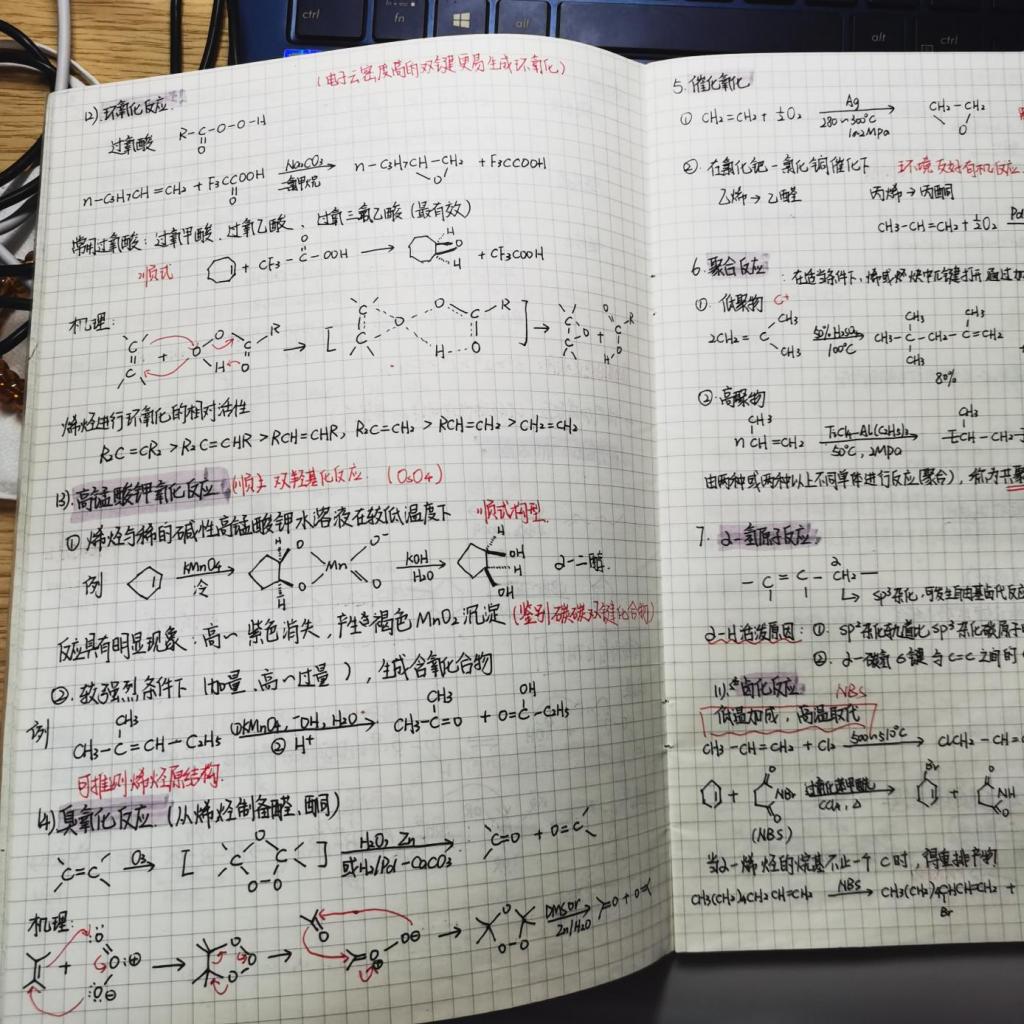 (电子云密度高的双键更易生成环氧化)
(2).环氧化反应.
过氧酸 R-C-O-O-H
O
n-C3H7CH=CH2 + F3CCOOH Na2CO3 二氯甲烷 n-C3H7CH-CH2 + F3CCOOH
O O
常用过氧酸：过氧甲酸、过氧乙酸、过氧三氟乙酸(最有效)
顺式 + CF3-C-OOH O H H + CF3COOH
机理:
烯烃进行环氧化的相对活性
R2C=CR2 > R2C=CHR > RCH=CHR, R2C=CH2 > RCH=CH2 > CH2=CH2
(3).高锰酸钾氧化反应. (顺式双羟基化反应. (OsO4)
① 烯烃与稀的碱性高锰酸钾水溶液在较低温度下 顺式构型.
例 KMnO4 冷 H H O O Mn O- O KOH H2O H OH H OH α-二醇.
反应具有明显现象：高一紫色消失，产生褐色MnO2沉淀(鉴别碳碳双键化合物)
②. 较强烈条件下 (加量、高一过量)，生成含氧化合物
例 CH3-C=CH-C2H5 CH3 ①KMnO4, -OH, H2O ② H+ CH3-C=O CH3 + O=C-C2H5 OH
可推测烯烃原结构.
(4)臭氧化反应. (从烯烃制备醛、酮)
C=C O3 [ C O C O-O ] H2O, Zn 或H2/Pd-CaCO3 C=O + O=C
机理: DMS or Zn/H2O
5. 催化氧化
① CH2=CH2 + ½O2 Ag 280~300℃ 1~2MPa CH2-CH2
O
②. 在氯化钯-氯化铜催化下 环境友好有机反应.
乙烯→乙醛 丙烯→丙酮
CH3-CH=CH2 + ½O2
6. 聚合反应 : 在适当条件下，烯或炔烃中π键打开通过加
①. 低聚物 C+
2CH2=C CH3 CH3 50%H2SO4 100℃ CH3-C-CH2-C=CH2 CH3 CH3 CH3
80%
②. 高聚物
CH3
nCH=CH2 TiCl4-Al(C2H5)3 50℃, 2MPa CH3 CH-CH2
由两种或两种以上不同单体进行反应(聚合)，称为共聚
7. α-氢原子反应.
α
-C=C-CH2-
sp³杂化, 可发生自由基卤代反应
α-H活泼原因：①. sp²杂化轨道比sp³杂化碳原子
②. α-碳氢σ键与C=C之间的
(1). 卤化反应. NBS
低温加成，高温取代
CH3-CH=CH2 + Cl2 500~510℃ ClCH2-CH=
+ O NBr O 过氧化苯甲酰 CCl4, Δ Br + O NH
(NBS)
当α-烯烃的烷基不止一个C时，得重排产物
CH3(CH2)4CH2CH=CH2 NBS CH3(CH2)4CHCH=CH2 +
Br